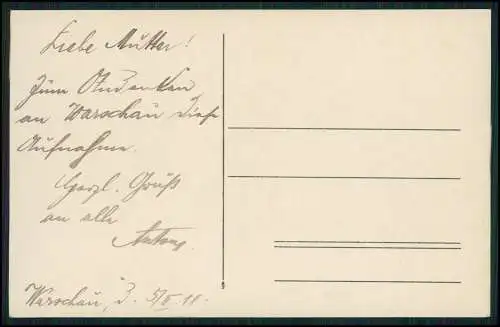 Liebe Mutter!
Zum Andenken
an Warschau diese
Aufnahme.
Herzl. Gruß
an alle
Warschau, 3.